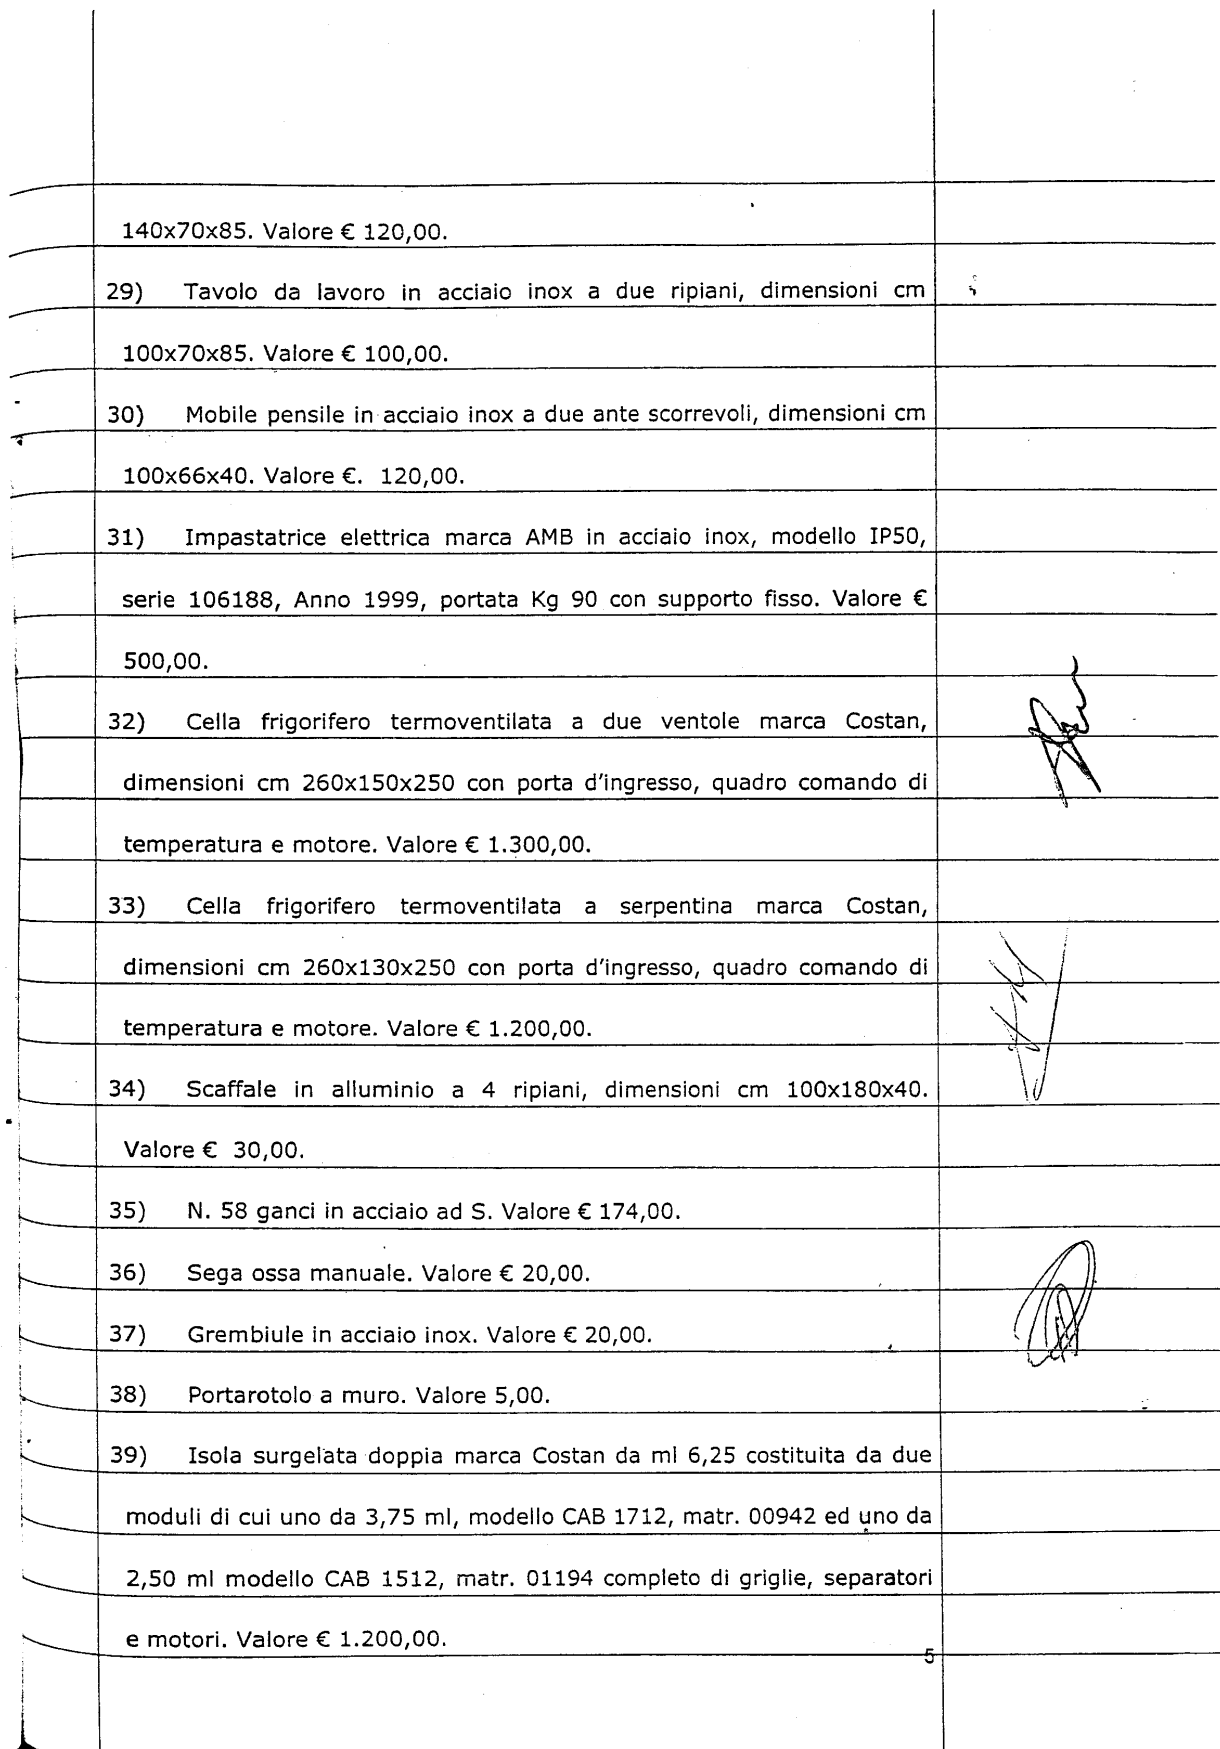 140x70x85. Valore € 120,00.
29) Tavolo da lavoro in acciaio inox a due ripiani, dimensioni cm
100x70x85. Valore € 100,00.
30) Mobile pensile in acciaio inox a due ante scorrevoli, dimensioni cm
100x66x40. Valore €. 120,00.
31) Impastatrice elettrica marca AMB in acciaio inox, modello IP50,
serie 106188, Anno 1999, portata Kg 90 con supporto fisso. Valore €
500,00.
32) Cella frigorifero termoventilata a due ventole marca Costan,
dimensioni cm 260x150x250 con porta d'ingresso, quadro comando di
temperatura e motore. Valore € 1.300,00.
33) Cella frigorifero termoventilata a serpentina marca Costan,
dimensioni cm 260x130x250 con porta d'ingresso, quadro comando di
temperatura e motore. Valore € 1.200,00.
34) Scaffale in alluminio a 4 ripiani, dimensioni cm 100x180x40.
Valore € 30,00.
35) N. 58 ganci in acciaio ad S. Valore € 174,00.
36) Sega ossa manuale. Valore € 20,00.
37) Grembiule in acciaio inox. Valore € 20,00.
38) Portarotolo a muro. Valore 5,00.
39) Isola surgelata doppia marca Costan da ml 6,25 costituita da due
moduli di cui uno da 3,75 ml, modello CAB 1712, matr. 00942 ed uno da
2,50 ml modello CAB 1512, matr. 01194 completo di griglie, separatori
e motori. Valore € 1.200,00.
5